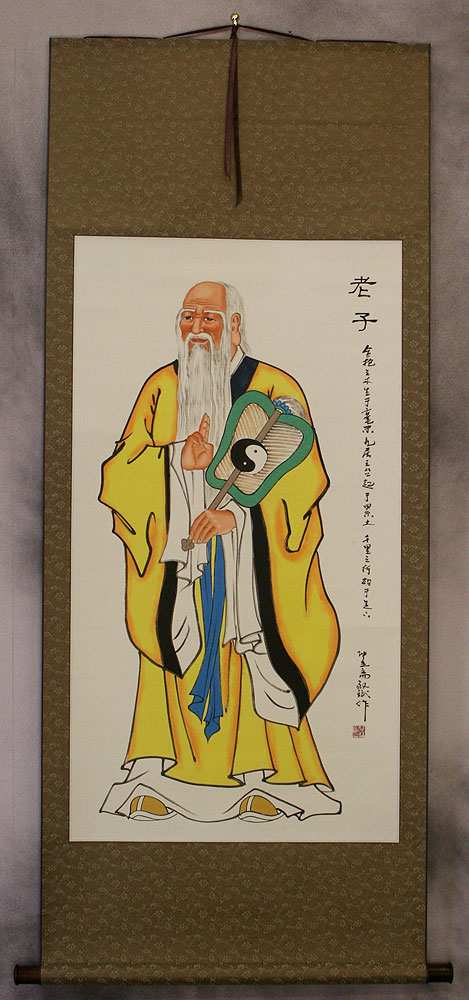 老子
合抱之木生于毫末九层之台起于累土 千里之行始于足下